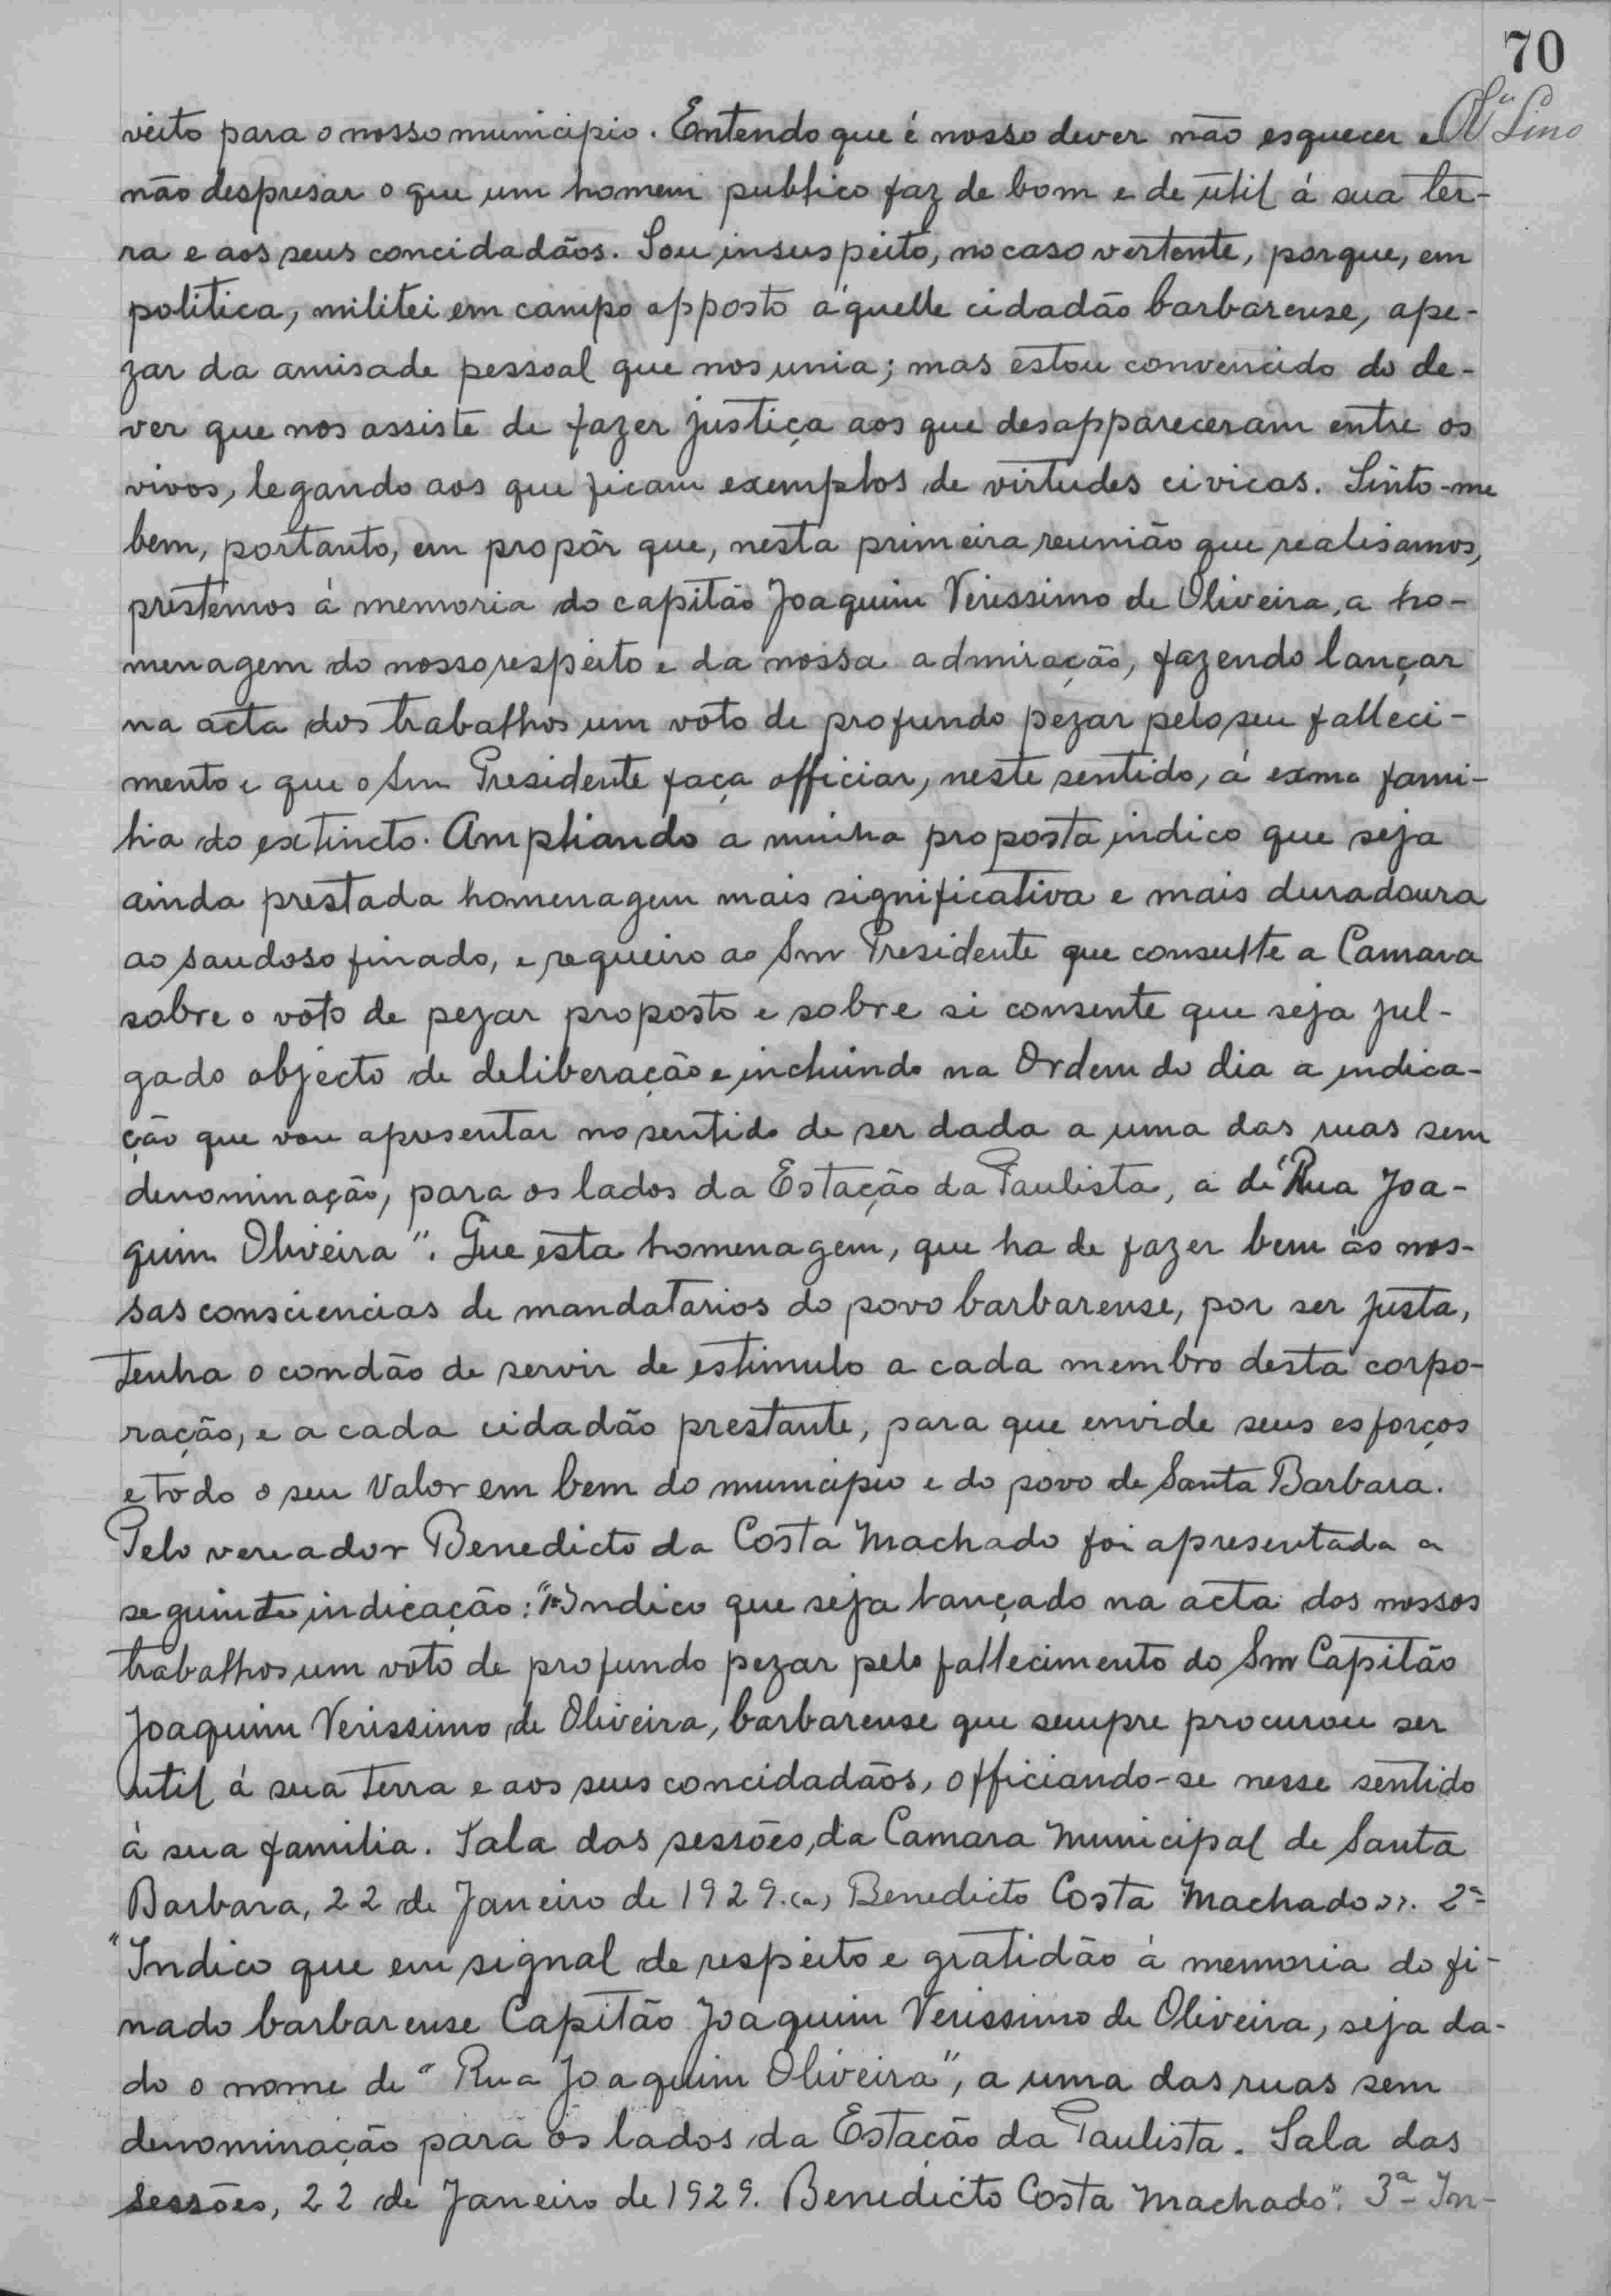 70
veito para o nosso municipio. Entendo que é nosso dever não esquecer e Lino
não despresar o que um homem publico faz de bom e de util á sua ter-
ra e aos seus concidadãos. Sou insuspeito, no caso vertente, porque, em
politica, militei em campo opposto áquelle cidadão barbarense, ape-
zar da amisade pessoal que nos unia; mas estou convencido do de-
ver que nos assiste de fazer justiça aos que desappareceram entre os
vivos, legando aos que ficam exemplos de virtudes civicas. Sinto-me
bem, portanto, em propôr que, nesta primeira reunião que realisamos,
prestemos á memoria do capitão Joaquim Verissimo de Oliveira, a ho-
menagem do nosso respeito e da nossa admiração, fazendo lançar
na acta dos trabalhos um voto de profundo pezar pelo seu falleci-
mento e que o Snr Presidente faça officiar, neste sentido, á exma fami-
lia do extincto. Ampliando a minha proposta, indico que seja
ainda prestada homenagem mais significativa e mais duradoura
ao saudoso finado, e requeiro ao Snr Presidente que consulte a Camara
sobre o voto de pezar proposto e sobre si consente que seja jul-
gado objecto de deliberação e incluindo na Ordem do dia a indica-
ção que vou apresentar no sentido de ser dada a uma das ruas sem
denominação, para os lados da Estação da Paulista, a de "Rua Joa-
quim Oliveira". Que esta homenagem, que ha de fazer bem ás nos-
sas consciencias de mandatarios do povo barbarense, por ser justa,
tenha o condão de servir de estimulo a cada membro desta corpo-
ração, e a cada cidadão prestante, para que envide seus esforços
e todo o seu valor em bem do municipio e do povo de Santa Barbara.
Pelo vereador Benedicto da Costa Machado foi apresentada a
seguinte indicação: "Indico que seja lançado na acta dos nossos
trabalhos um voto de profundo pezar pelo fallecimento do Snr Capitão
Joaquim Verissimo de Oliveira, barbarense que sempre procurou ser
util á sua terra e aos seus concidadãos, officiando-se nesse sentido
á sua familia. Sala das sessões, da Camara Municipal de Santa
Barbara, 22 de Janeiro de 1929. (a) Benedicto Costa Machado". 2ª
"Indico que em signal de respeito e gratidão á memoria do fi-
nado barbarense Capitão Joaquim Verissimo de Oliveira, seja da-
do o nome de "Rua Joaquim Oliveira", a uma das ruas sem
denominação para os lados da Estação da Paulista. Sala das
sessões, 22 de Janeiro de 1929. Benedicto Costa Machado". 3ª In-